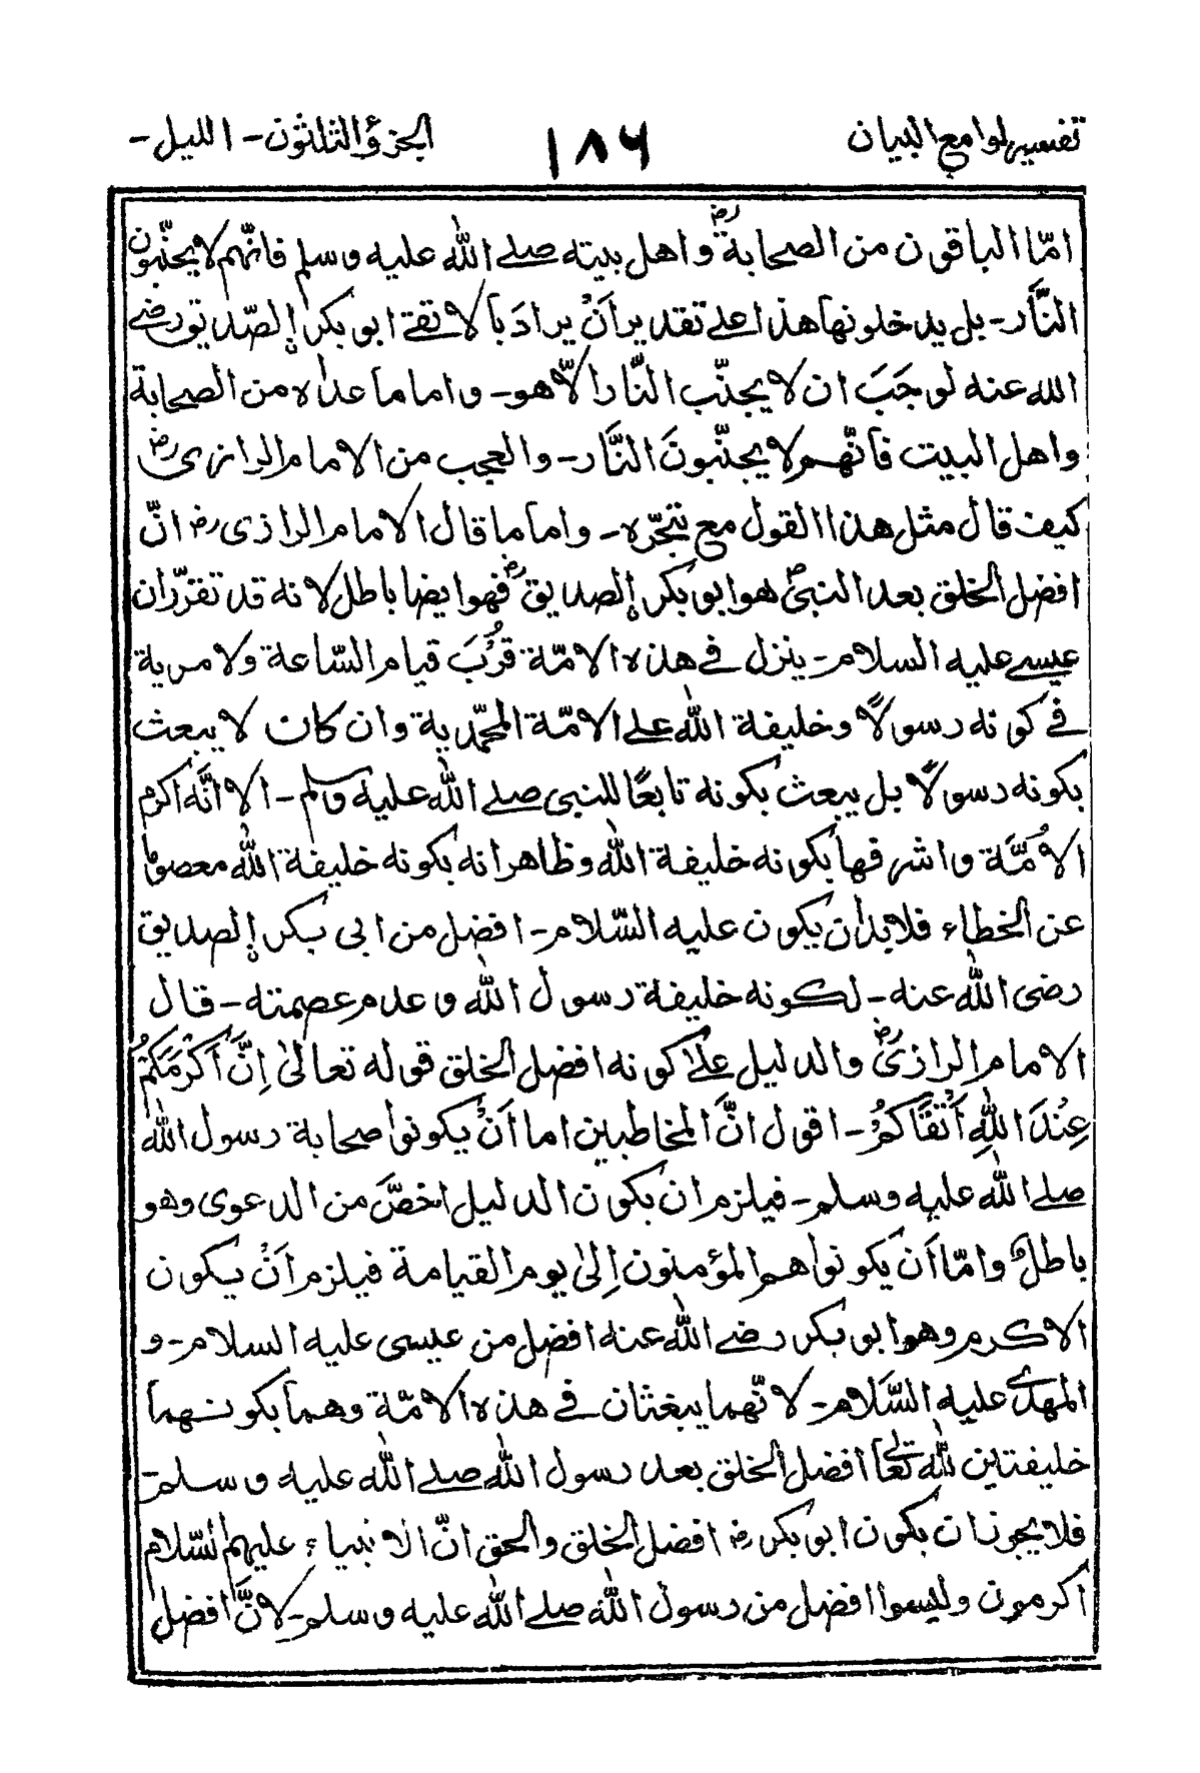 تفسیر لوامع البیان ١٨٦ الجزؤ الثلثون - اللیل -
امّا الباقون من الصحابةؓ و اهل بیته صلے اللّٰه علیه وسلم فانّهم لا یجنّبون
النَّار - بل ید خلونها هذا علے تقدیر أنْ یرادَ بالاتقے ابو بکر الصّدیق رضے
الله عنه لوجَبَ ان لا یجنّب النّار الّا هو - واما ما عداه من الصحابة
واهل البیت فانّهم لا یجنّبونَ النَّار - والعجب من الامام الرازیؒ
کیف قال مثل هذا القول مع تبحّره - واما ما قال الامام الرازی رض انّ
افضل الخلق بعد النبیؐ هو ابو بکر الصدیقؓ فهو ایضا باطل لانه قد تقرّر ان
عیسے علیه السلام - ینزل فے هذه الامّة قُرُبَ قیام السّاعة ولا مریة
فے کونه رسولًا وخلیفة اللّٰه علے الامّة المحمّدیة وان کان لا یبعث
بکونه رسولًا بل یبعث بکونه تابعًا للنبی صلے اللّٰه علیه وسلم - الا انَّه اکرم
الاُمَّة واشرفها بکونه خلیفة اللّٰه وظاهر انه بکونه خلیفة اللّٰه معصوم
عن الخطاء فلابد ان یکون علیه السّلام - افضل من ابی بکر الصدیق
رضی اللّٰه عنه - لکونه خلیفة رسول اللّٰه وعدم عصمته - قال
الامام الرازیؒ والدلیل علےٰ کونه افضل الخلق قوله تعالیٰ اِنَّ اَکْرَمَکُمْ
عِنْدَ اللّٰهِ اَتْقَاکُمْ - اقول انَّ المخاطبین اما أنْ یکونوا صحابة رسول اللّٰه
صلے اللّٰه علیه وسلم - فیلزم ان یکون الدلیل اخصَّ من الدعوی وهو
باطلٌ وامّا أن یکونوا هم المؤمنون اِلیٰ یوم القیامة فیلزم أنْ یکون
الاکرم وهو ابو بکر رضے اللّٰه عنه افضل من عیسی علیه السلام - و
المهدے علیه السَّلام - لانّهما یبعثان فے هذه الامّة وهما بکونهما
خلیفتین للّٰه تعالےٰ افضل الخلق بعد رسول اللّٰه صلے اللّٰه علیه وسلم -
فلا یجوز ان یکون ابو بکر رض افضل الخلق والحق انّ الانبیاء علیهم السّلام
اکرمون ولیسوا افضل من رسول اللّٰه صلے اللّٰه علیه وسلم - لانَّ افضل